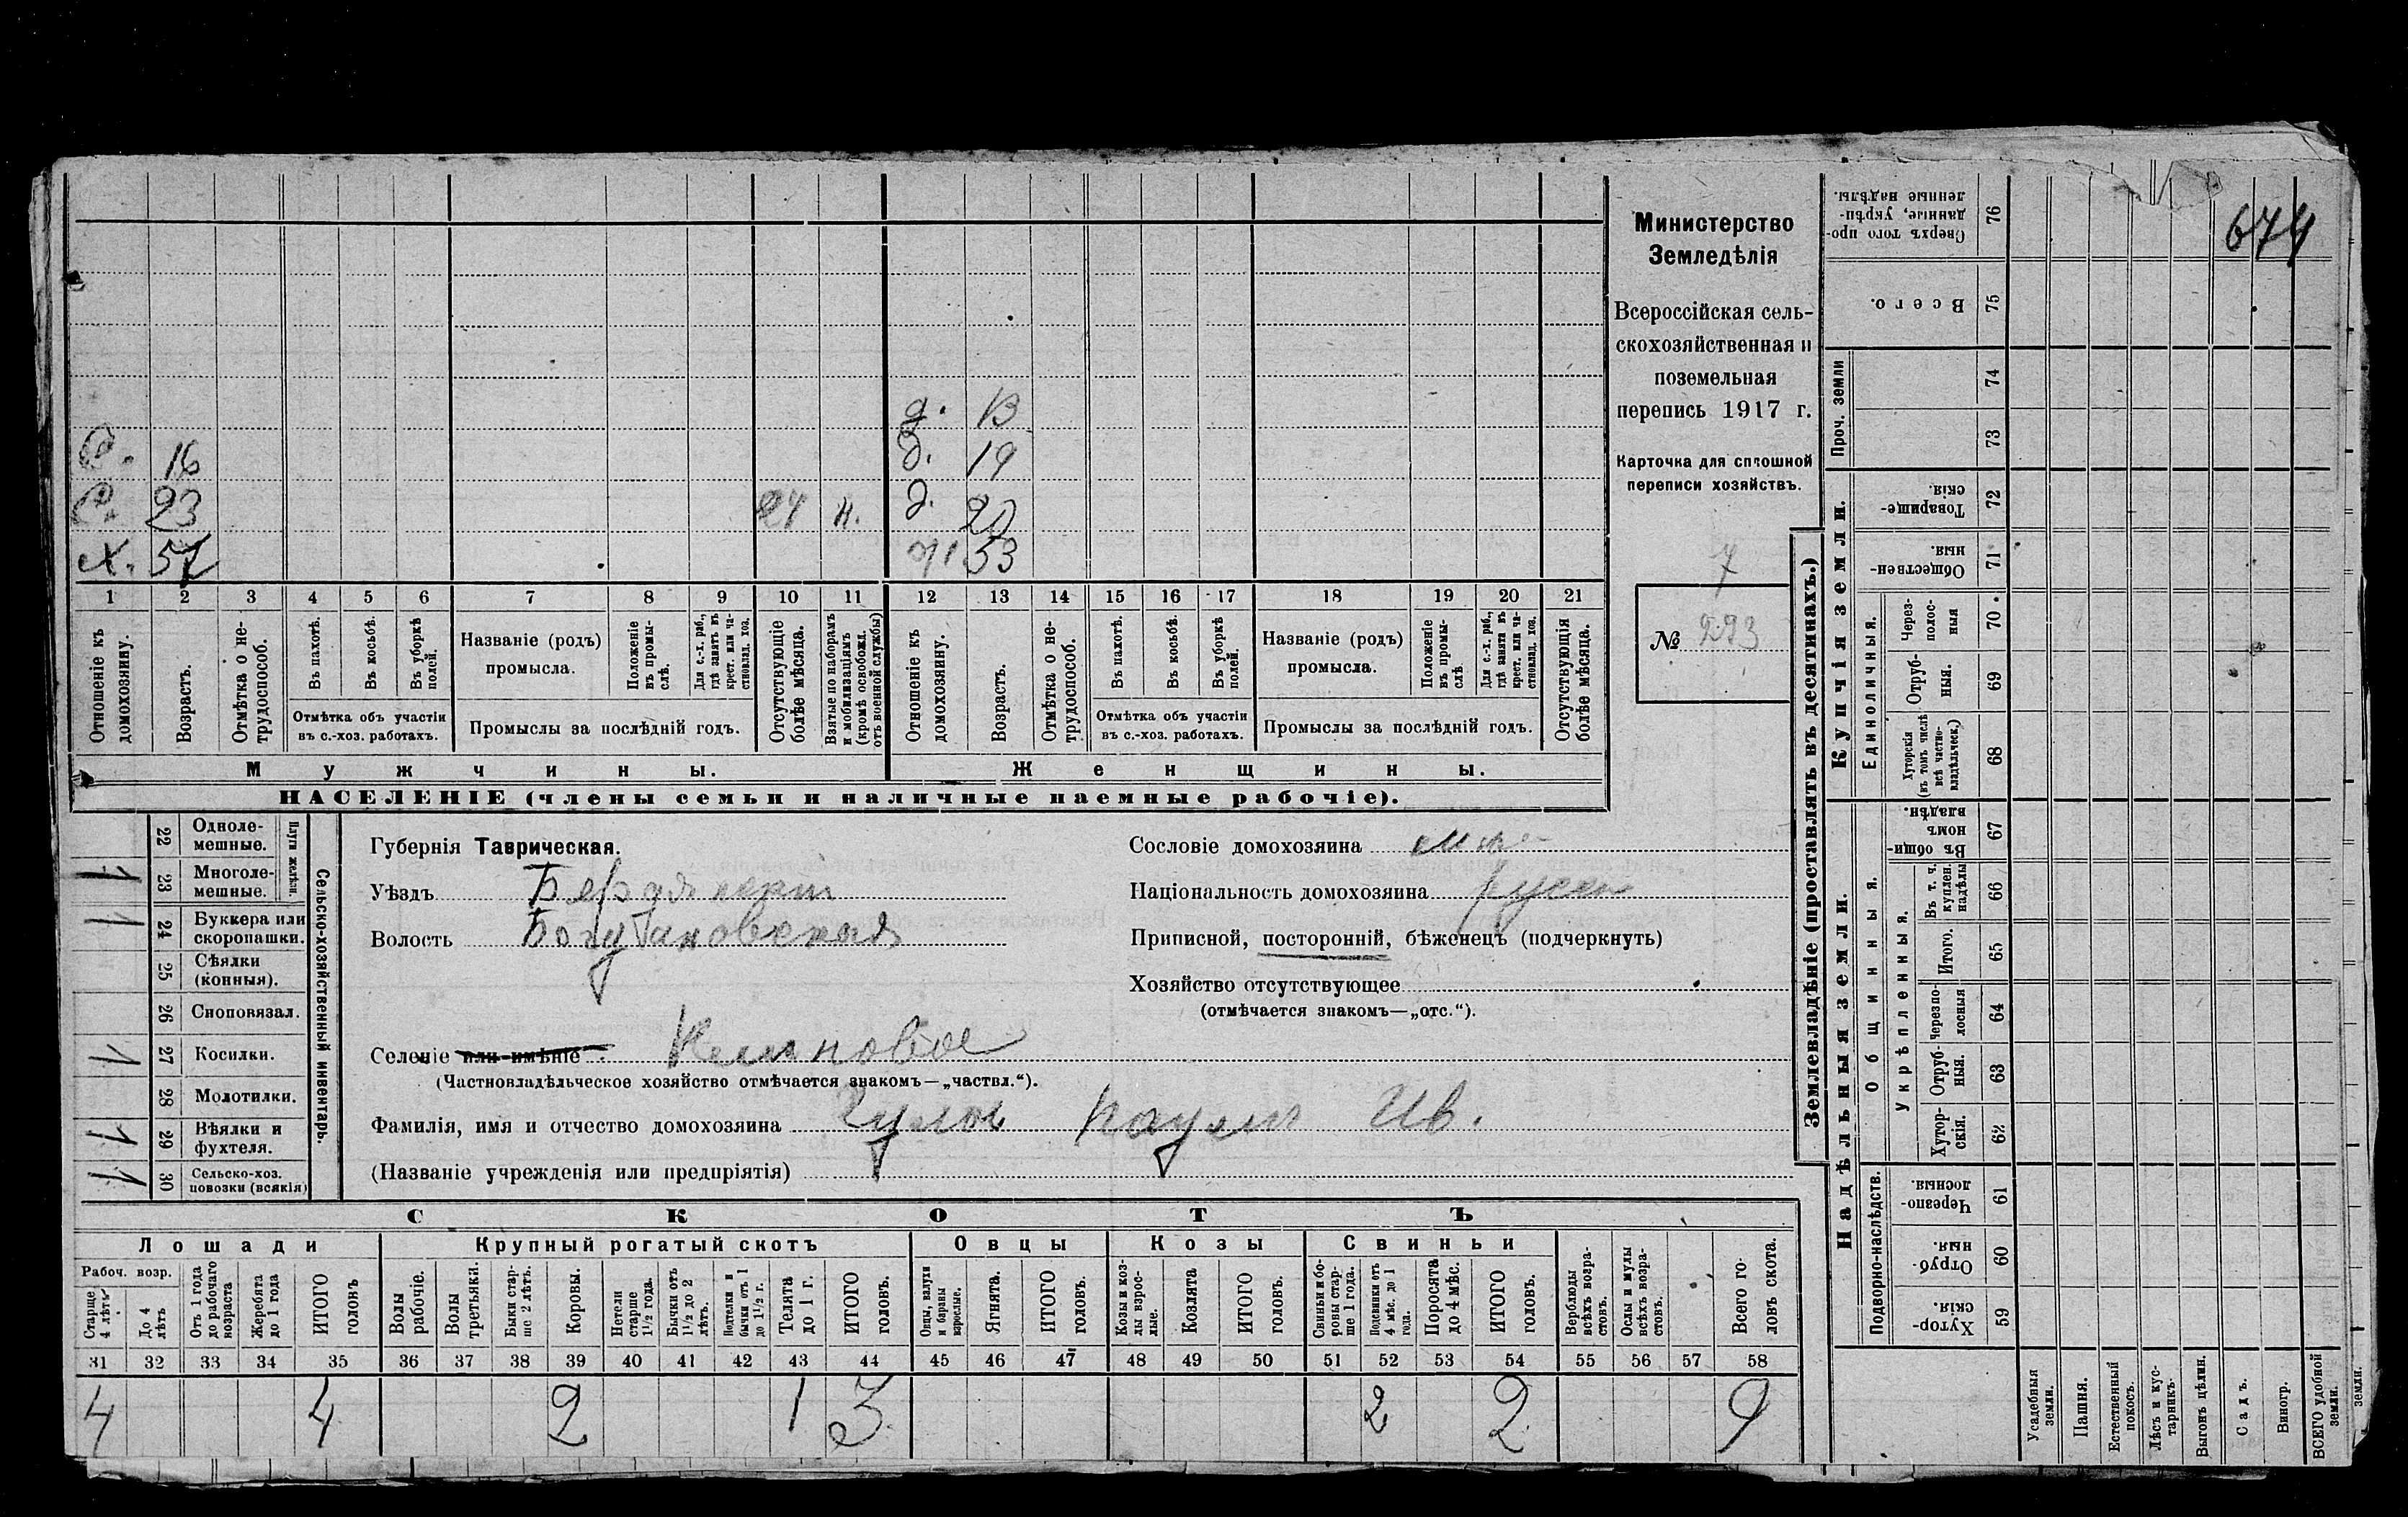 674
Министерство
Земледѣлія
Всероссійская сель-
скохозяйственная и
поземельная
перепись 1917 г.
Карточка для сплошной
переписи хозяйствъ.
7
№ 293
д. 13
С. 16 д. 19
С. 23 н. д. 20
Х. 57 53
1 2 3 4 5 6 7 8 9 10 11 12 13 14 15 16 17 18 19 20 21
Отношеніе къ домохозяину.
Возрастъ.
Отмѣтка о не-трудоспособ.
Въ пахотѣ.
Въ косьбѣ.
Въ уборкѣ полей.
Отмѣтка объ участіи
въ с.-хоз. работахъ.
Названіе (родъ)
промысла.
Положеніе въ промы-слѣ.
Для с.-х. раб., гдѣ занятъ въ крест. или ча-стновлад. хоз.
Промыслы за послѣдній годъ.
Отсутствующіе болѣе мѣсяца.
Взятые по наборамъ и мобилизаціямъ (кромѣ освобожд. отъ военной службы)
Отношеніе къ домохозяину.
Возрастъ.
Отмѣтка о не-трудоспособ.
Въ пахотѣ.
Въ косьбѣ.
Въ уборкѣ полей.
Отмѣтка объ участіи
въ с.-хоз. работахъ.
Названіе (родъ)
промысла.
Положеніе въ промы-слѣ
Для с.-х. раб., гдѣ занята въ крест. или ча-стновлад. хоз.
Промыслы за послѣдній годъ.
Отсутствующія болѣе мѣсяца.
Мужчины. Женщины.
НАСЕЛЕНІЕ (члены семьи и наличные наемные рабочіе).
Сельско-хозяйственный инвентарь.
Плуги желѣзн.
22 Одноле-мешные.
1 23 Многоле-мешные.
1 24 Буккера или скоропашки.
25 Сѣялки (конныя).
26 Сноповязал.
1 27 Косилки.
28 Молотилки.
1 29 Вѣялки и фухтеля.
1 30 Сельско-хоз. повозки (всякія)
Губернія Таврическая.
Уѣздъ Бердянскій
Волость
Селеніе или имѣніе
(Частновладѣльческое хозяйство отмѣчается знакомъ—„частвл.“).
Фамилія, имя и отчество домохозяина Ив.
(Названіе учрежденія или предпріятія)
Сословіе домохозяина
Національность домохозяина русск
Приписной, посторонній, бѣженецъ (подчеркнуть)
Хозяйство отсутствующее
(отмѣчается знакомъ—„отс.“).
СКОТЪ
Лошади Крупный рогатый скотъ Овцы Козы Свиньи
Рабоч. возр.
Старше 4 лѣтъ
До 4 лѣтъ
Отъ 1 года до рабочаго возраста
Жеребята до 1 года
ИТОГО головъ
Волы рабочіе.
Волы третьяки.
Быки стар-ше 2 лѣтъ.
Коровы.
Нетели старше 1½ года.
Бычки отъ 1½ до 2 лѣтъ.
Подтелки и бычки отъ 1 до 1½ г.
Телята до 1 г.
ИТОГО головъ.
Овцы, валухи и бараны взрослые.
Ягнята.
ИТОГО головъ.
Козы и коз-лы взрос-лые.
Козлята
ИТОГО головъ.
Свиньи и бо-ровы стар-ше 1 года.
Подсвинки отъ 4 мѣс. до 1 года.
Поросята до 4 мѣс.
ИТОГО головъ.
Верблюды всѣхъ возра-стовъ.
Ослы и мулы всѣхъ возра-стовъ.
Всего го-ловъ скота.
31 32 33 34 35 36 37 38 39 40 41 42 43 44 45 46 47 48 49 50 51 52 53 54 55 56 57 58
4 4 2 1 3 2 2 9
Землевладѣніе (проставлять въ десятинахъ.)
Надѣльныя земли. Купчія земли. Проч. земли
Подворно-наслѣдств.
Общинныя.
Укрѣпленныя.
Единоличныя.
Сверхъ того про-данные, укрѣп-ленные надѣлы. 76
Всего. 75
74
73
Товарище-скія. 72
Обществен-ныя. 71
Через-полос-ныя 70
Отруб-ныя. 69
Хуторскія (въ томъ числѣ всѣ частно-владѣльческ.) 68
Въ общин-номъ владѣн. 67
Въ т. ч. куплен. надѣлы 66
Итого. 65
Черезпо-лосныя 64
Отруб-ныя. 63
Хутор-скія. 62
Черезпо-лосныя. 61
Отруб-ныя. 60
Хутор-скія. 59
Усадебныя земли.
Пашня.
Естественный покосъ.
Лѣсъ и кус-тарникъ.
Выгонъ цѣлин.
Садъ.
Виногр.
ВСЕГО удобной земли.
земли.